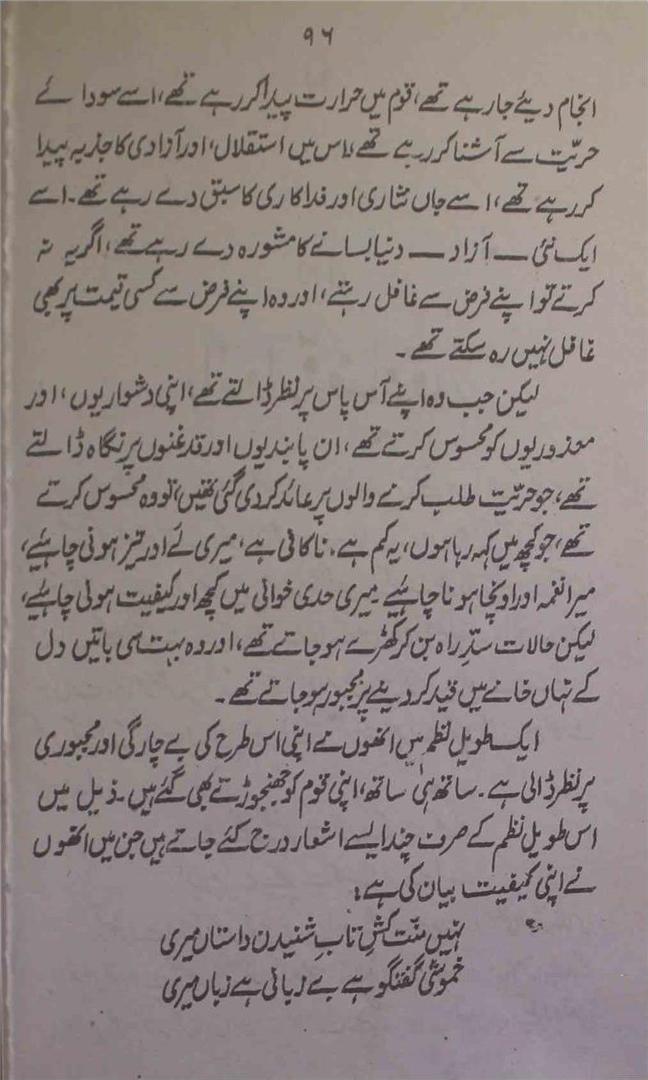 ۹۶
انجام دیئے جا رہے تھے، قوم میں حرارت پیدا کر رہے تھے، اسے سودائے
حرّیت سے آشنا کر رہے تھے، اس میں استقلال، اور آزادی کا جذبہ پیدا
کر رہے تھے، اسے جاں نثاری اور فداکاری کا سبق دے رہے تھے۔ اسے
ایک نئی — آزاد — دنیا بسانے کا مشورہ دے رہے تھے، اگر یہ نہ
کرتے تو اپنے فرض سے غافل رہتے، اور وہ اپنے فرض سے کسی قیمت پر بھی
غافل نہیں رہ سکتے تھے۔
لیکن جب وہ اپنے آس پاس پر نظر ڈالتے تھے، اپنی دشواریوں، اور
معذوریوں کو محسوس کرتے تھے، ان پابندیوں اور قدغنوں پر نگاہ ڈالتے
تھے، جو حرّیت طلب کرنے والوں پر عائد کر دی گئی تھیں، تو وہ محسوس کرتے
تھے، جو کچھ میں کہہ رہا ہوں، یہ کم ہے۔ ناکافی ہے، میری لے اور تیز ہونی چاہئیے،
میرا نغمہ اور اونچا ہونا چاہئیے۔ میری حدی خوانی میں کچھ اور کیفیت ہونی چاہئیے،
لیکن حالات سدِّ راہ بن کر کھڑے ہو جاتے تھے، اور وہ بہت سی باتیں دل
کے نہاں خانے میں قید کر دینے پر مجبور ہو جاتے تھے۔
ایک طویل نظم میں انھوں نے اپنی اس طرح کی بے چارگی اور مجبوری
پر نظر ڈالی ہے۔ ساتھ ہی ساتھ، اپنی قوم کو جھنجوڑتے بھی گئے ہیں۔ ذیل میں
اس طویل نظم کے صرف چند ایسے اشعار درج کئے جاتے ہیں جن میں انھوں
نے اپنی کیفیت بیان کی ہے:
نہیں منّت کشِ تابِ شنیدن داستاں میری
خموشی گفتگو ہے بے زبانی ہے زباں میری